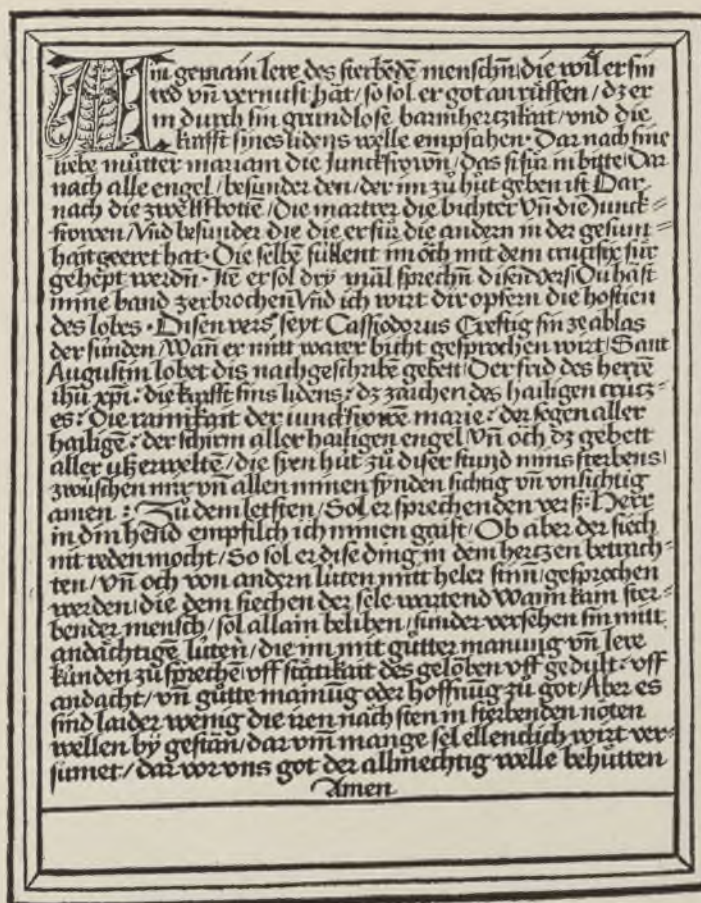 Ain gemain lere des sterbēdē menschn / die wil er sin
red vn̄ vernufft hāt / so sol er got an rüffen / dz er
in durch sin grundlose barmhertzikait / vnd die
krafft sines lidens welle empfahen · Dar nach sine
liebe můtter mariam die Junckfrowñ / das si für in bitte / Dar
nach alle engel / besunder den / der im zů hůt geben ist Dar
nach die zwelffbottē / die martrer die bichter Vn̄ die Junck=
frowen / Vnd besunder die die er für die andern in der gesunt=
hait geeret hat · Die selbē süllent im öch mit dem crucifix für
gehept werdñ · Itē er sol dry māl sprechñ disen vers / Du hāst
mine band zerbrochen / Vnd ich wirt dir opfern die hostien
des lobes · Disen vers seyt Cassiodorus Creftig sin ze ablas
der sunden / Wañ er mitt warer bicht gesprochen wirt / Sant
Augustin lobet dis nachgeschribē gebett / Der frid des herrē
ihū xp̄i : die krafft sins lidens : dz zaichen des hailigen crutz=
es : die rainikait der iunckfrowē marie : der segen aller
hailigē : der schirm aller hailigen engel / Vn̄ öch dz gebett
aller vßerweltē / die syen hüt zů diser stund mins sterbens /
zwüschen mir vn̄ allen minen fynden sichtig vn̄ vnsichtig
amen : Zů dem letsten / Sol er sprechen den verß : Herr
in din hend empfilch ich minen gaist / Ob aber der siech
nit reden mocht / So sol er dise ding in dem hertzen betrach=
ten / vn̄ och von andern lüten mitt heler stim̄ / gesprochen
werden / die dem siechen der sele wartend Wann kain ster=
bender mensch / sol allain beliben / sunder versehen sin mitt
andāchtigē lüten / die im mit gůtter manung vn̄ lere
kunden zů sprechē / vff stātikait des gelöben vff gedult : vff
andacht / vn̄ gůtte mainūg oder hoffnūg zů got / Aber es
sind laider wenig die iren nāchsten in sterbenden nöten
wellen by gestān / dar vm̄ mange sel ellendclich wirt ver=
sumet / dar vor vns got der allmechtig welle behütten
Amen